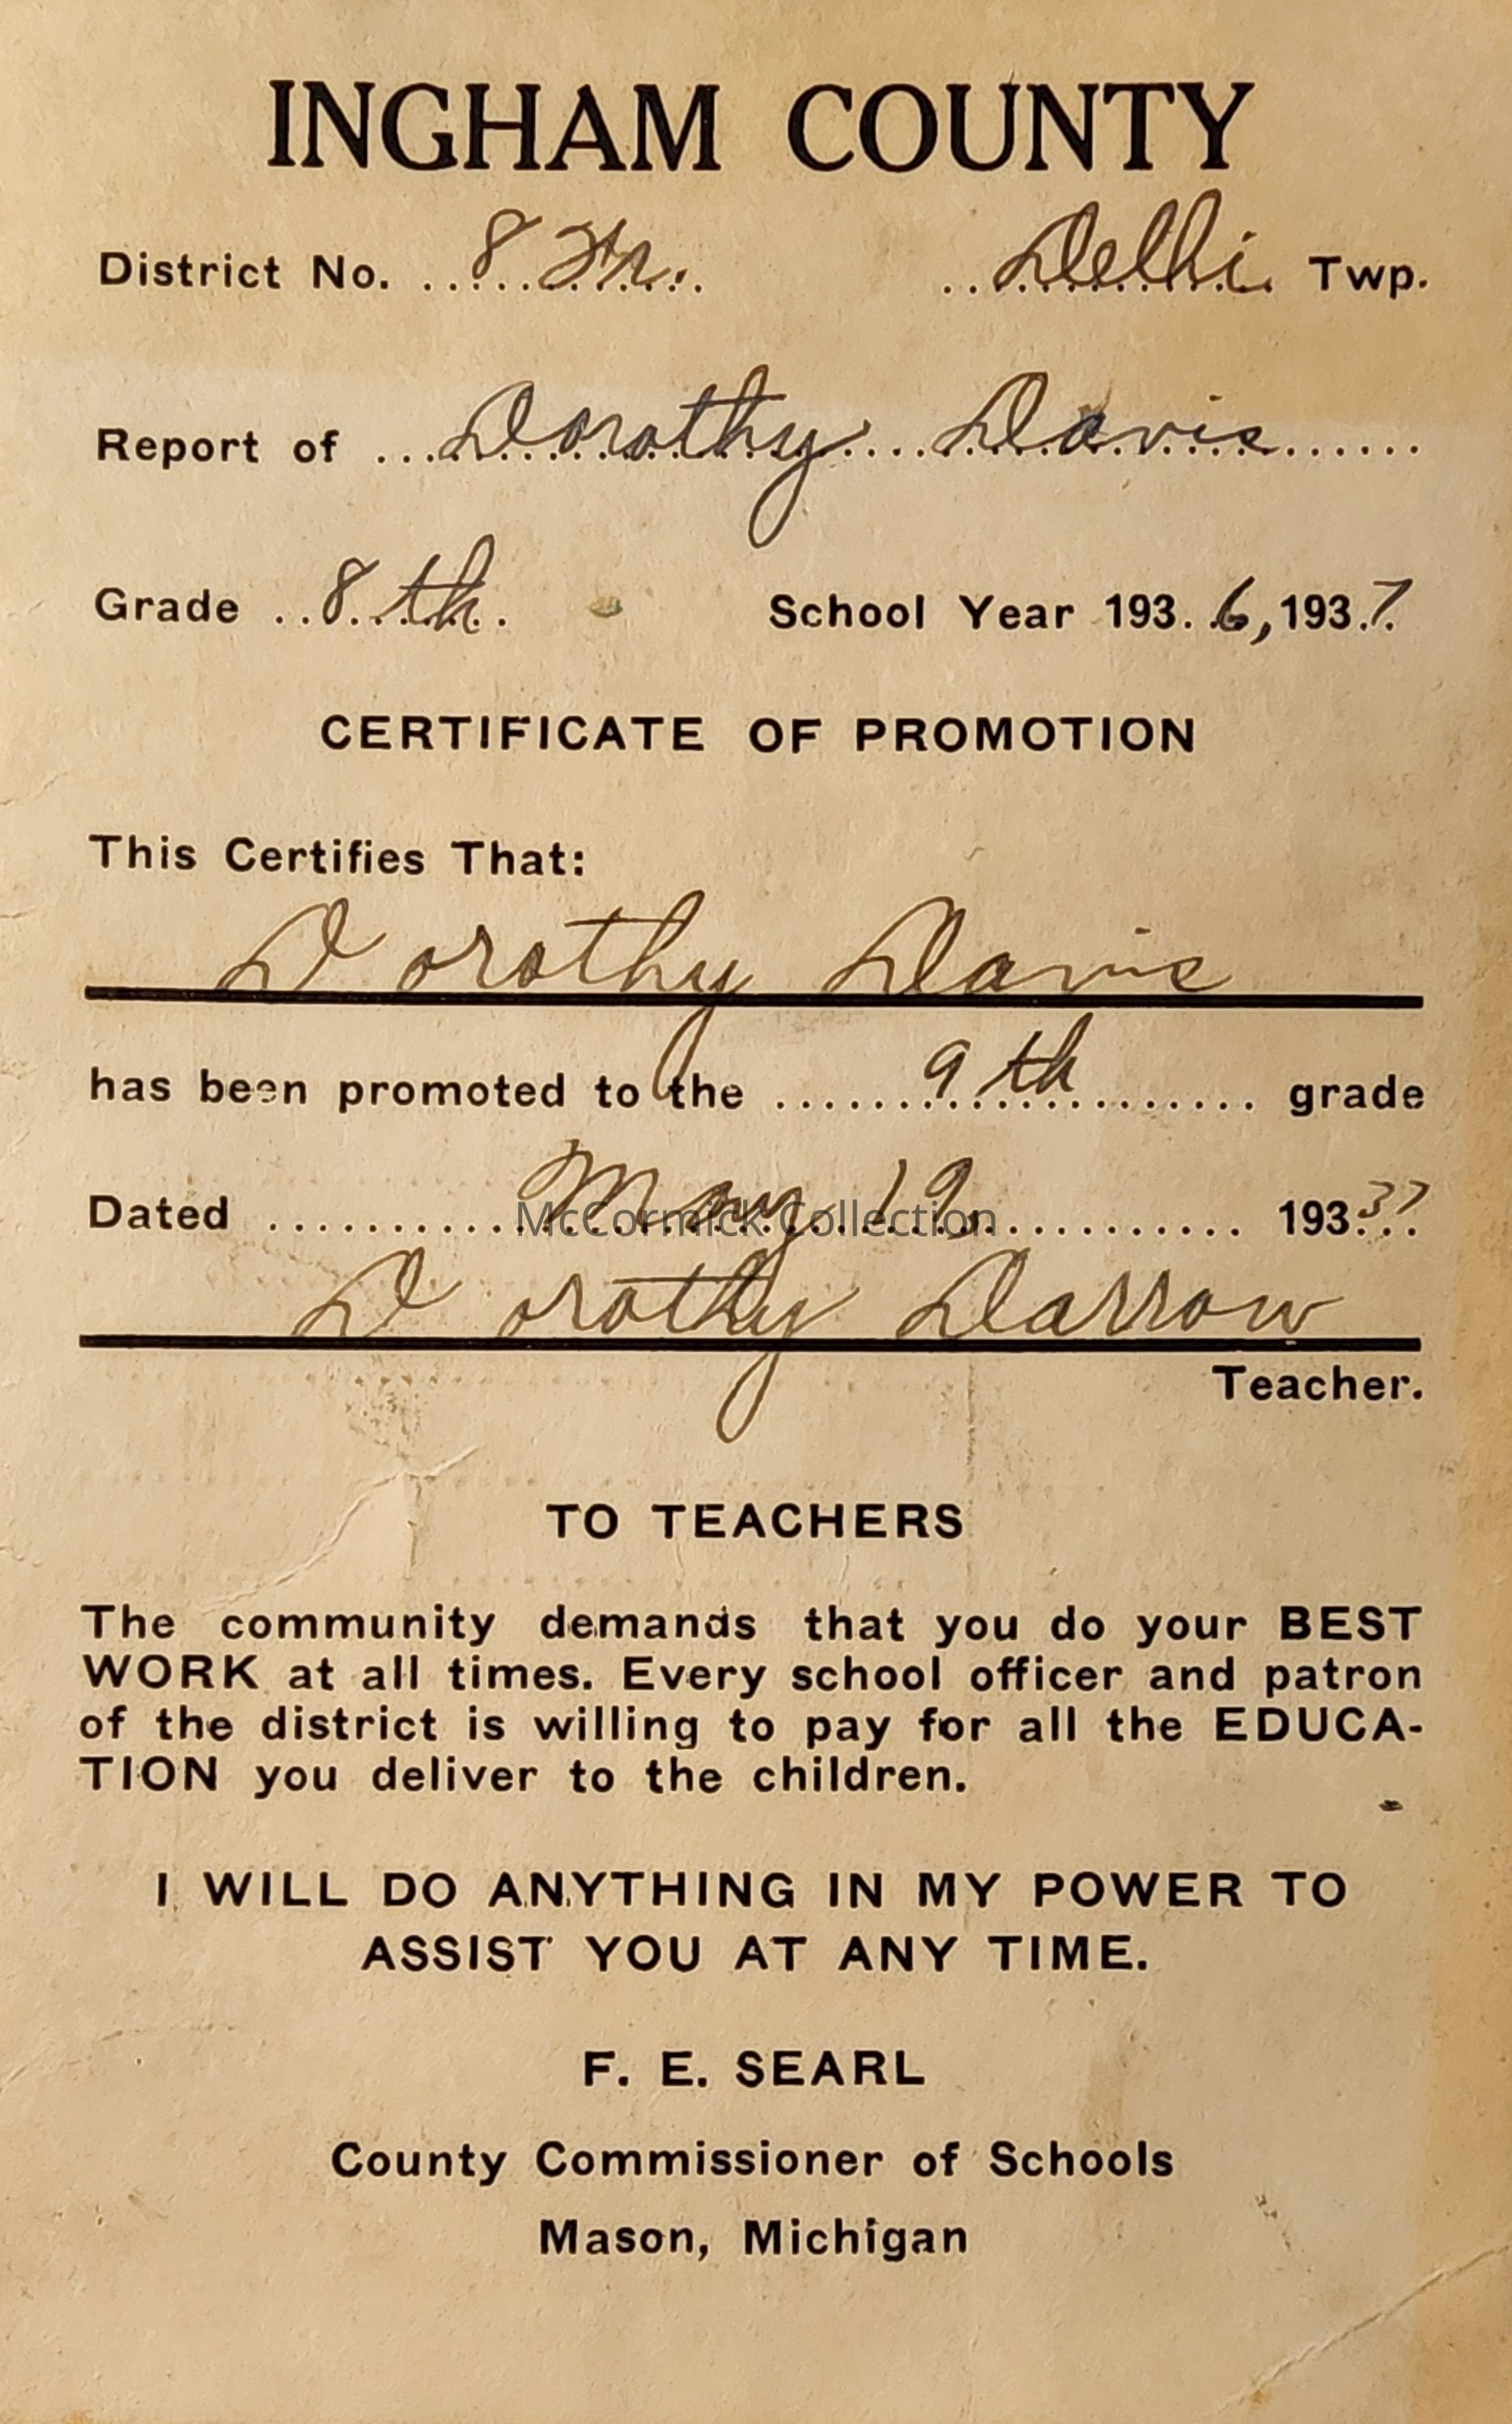 INGHAM COUNTY
District No. 8 Fr. Delhi Twp.
Report of Dorothy Davis
Grade 8th School Year 1936, 1937
CERTIFICATE OF PROMOTION
This Certifies That:
Dorothy Davis
has been promoted to the 9th grade
Dated May 19, 19337
McCormick Collection
Dorothy Darrow
Teacher.
TO TEACHERS
The community demands that you do your BEST
WORK at all times. Every school officer and patron
of the district is willing to pay for all the EDUCA-
TION you deliver to the children.
I WILL DO ANYTHING IN MY POWER TO
ASSIST YOU AT ANY TIME.
F. E. SEARL
County Commissioner of Schools
Mason, Michigan